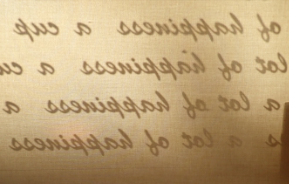 of happiness a cup
lot of happiness a cu
a lot of happiness a
s a lot of happiness